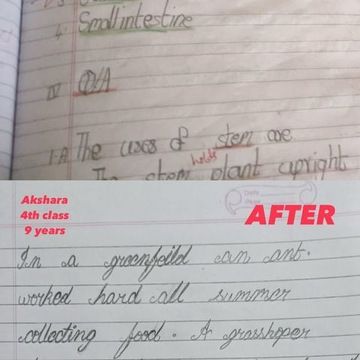 4. Small intestine
IV Q/A
1. A. The uses of stem are
holds
The stem plant upright
Akshara
4th class
9 years
Date
Page
AFTER
In a greenfeild an ant.
worked hard all summer
collecting food. A grasshoper